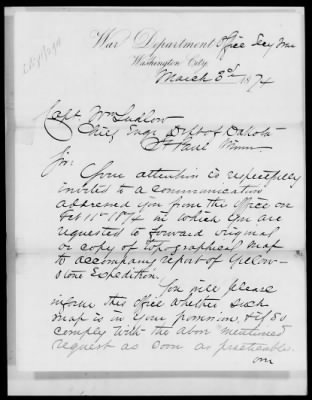 War Department Office Secy War
Washington City
March 3d 1874
Capt. Wm Ludlow
Chief Engr Dept of Dakota
St Paul Minn.
Sir:
Your attention is respectfully
invited to a communication
addressed you from this office on
Feb 11th 1874 in which you are
requested to forward original
or copy of topographical map
to accompany report of Yellow-
stone Expedition.
You will please
inform this office whether such
map is in your possession, & if so
comply with the above mentioned
request as soon as practicable.